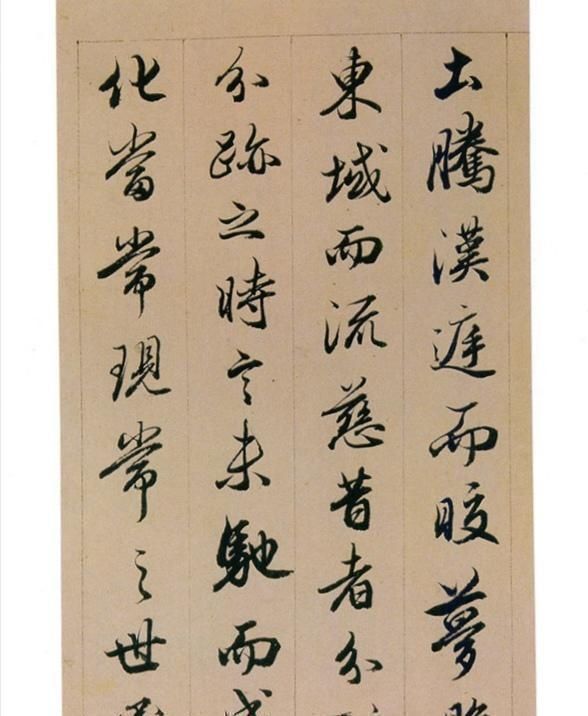 土騰漢庭而皎夢
東域而流慈昔者分
分跡之時言未馳而
化當常現常之世